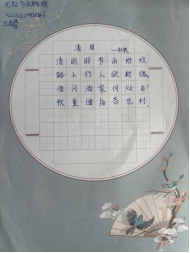 清明 —杜牧
清明时节雨纷纷
路上行人欲断魂
借问酒家何处有
牧童遥指杏花村